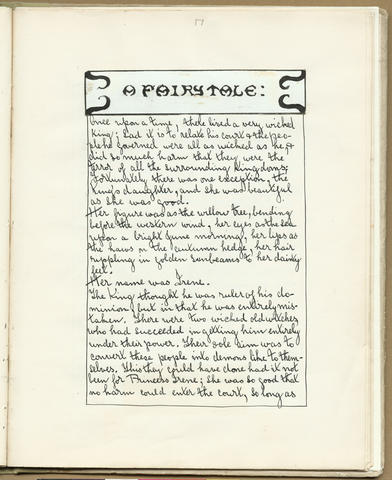 A FAIRY TALE:
Once upon a time, there lived a very wicked
King; Sad it is to relate his court & the peo-
ple he governed were all as wicked as he, &
did so much harm that they were the
terror of all the surrounding Kingdoms;
Fortunately there was one exception, the
King's daughter, and she was beautiful
as she was good.
Her figure was as the willow tree, bending
before the western wind, her eyes as the sea
upon a bright June morning, her lips as
the haws on the autumn hedge, her hair
rippling in golden sunbeams to her dainty
feet.
Her name was Irene.
The King thought he was ruler of his do-
minion but in that he was entirely mis-
taken. There were two wicked old witches
who had succeeded in getting him entirely
under their power. Their sole aim was to
convert these people into demons like to them-
selves. This they could have done had it not
been for Princess Irene; She was so good that
no harm could enter the court, so long as